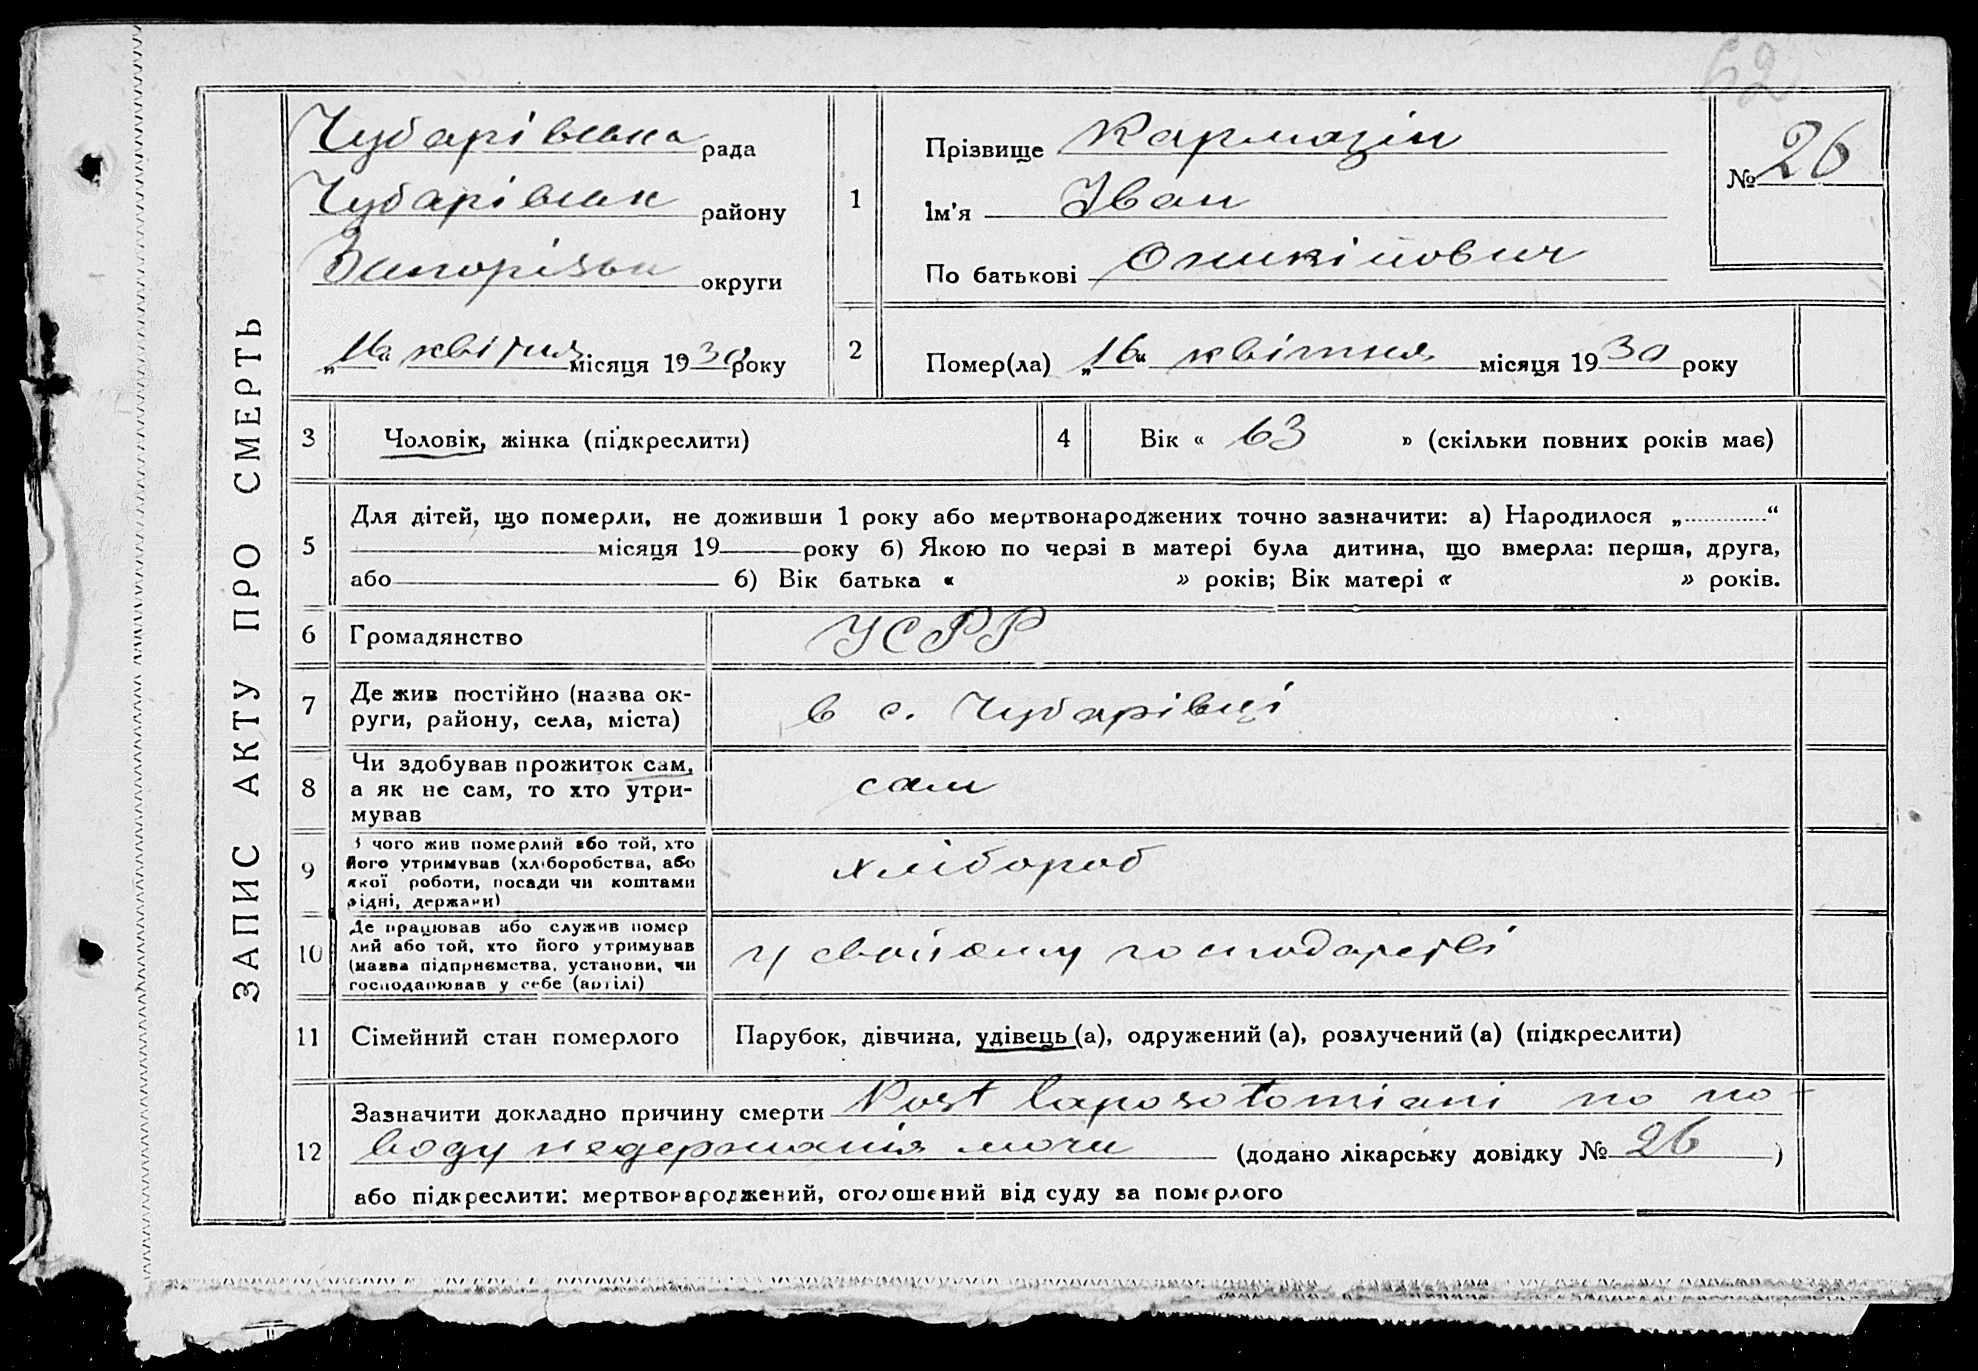 62
ЗАПИС АКТУ ПРО СМЕРТЬ
Чубарівська рада
Чубарівськ району
Запорізьк округи
„16“ квітня місяця 1930 року
1
Прізвище Кармазін
Ім'я Іван
По батькові
№ 26
2
Помер(ла) „16“ квітня місяця 1930 року
3 Чоловік, жінка (підкреслити)
4 Вік « 63 » (скільки повних років має)
5
Для дітей, що померли, не доживши 1 року або мертвонароджених точно зазначити: а) Народилося „ “
місяця 19 року б) Якою по черзі в матері була дитина, що вмерла: перша, друга,
або б) Вік батька « » років; Вік матері « » років.
6 Громадянство УСРР
7 Де жив постійно (назва ок-
руги, району, села, міста)
в с. Чубарівці
8 Чи здобував прожиток сам,
а як не сам, то хто утри-
мував
сам
9 З чого жив померлий або той, хто
його утримував (хліборобства, або
якої роботи, посади чи коштами
рідні, держави)
хлібороб
10 Де працював або служив помер
лий або той, хто його утримував
(назва підприємства, установи, чи
господарював у себе (артілі)
у свойому господарстві
11 Сімейний стан померлого Парубок, дівчина, удівець (а), одружений (а), розлучений (а) (підкреслити)
12
Зазначити докладно причину смерти Post по по-
воду недержанія мочи (додано лікарську довідку № 26 )
або підкреслити: мертвонароджений, оголошений від суду за померлого